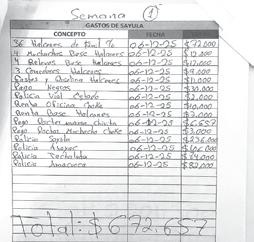 Semana 1
GASTOS DE SAYULA
CONCEPTO FECHA
36 Halcones de 06-12-25 $72,000
4 Muchachos Base Halcones 06-12-25 $12,000
4 Relevos Base Halcones 06-12-25 $12,000
3 Comedores Halcones 06-12-25 $9,000
Halcones 06-12-25 $11,000
Pago Negros 06-12-25 $30,000
Policia Vial 06-12-25 $2,000
Renta Oficina 06-12-25 $10,000
Renta Base Halcones 06-12-25 $2,000
Pago Doctor 06-12-25 $6,657
Pago Doctor Muchacho 06-12-25 $3,000
Policia Sayula 06-12-25
Policia 06-12-25
Policia 06-12-25
Policia Amacueca 06-12-25 $82,000
Total: $672,657